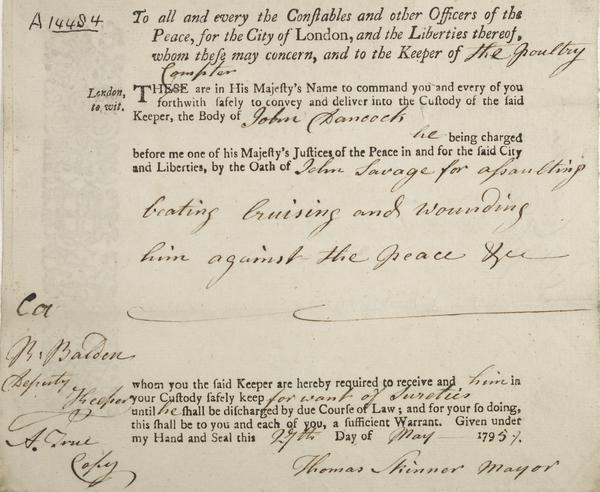 A 14484
To all and every the Constables and other Officers of the
Peace, for the City of London, and the Liberties thereof,
whom these may concern, and to the Keeper of the Poultry
Compter
London,
to wit.
THESE are in His Majesty's Name to command you and every of you
forthwith safely to convey and deliver into the Custody of the said
Keeper, the Body of John Hancock
he being charged
before me one of his Majesty's Justices of the Peace in and for the said City
and Liberties, by the Oath of John Savage for assaulting
beating bruising and wounding
him against the peace &c
R. Balden
Deputy
Keeper
A. True
Copy
whom you the said Keeper are hereby required to receive and him in
your Custody safely keep for want of Sureties
until he shall be discharged by due Course of Law; and for your so doing,
this shall be to you and each of you, a sufficient Warrant. Given under
my Hand and Seal this 27th Day of May 1795
Thomas Skinner Mayor